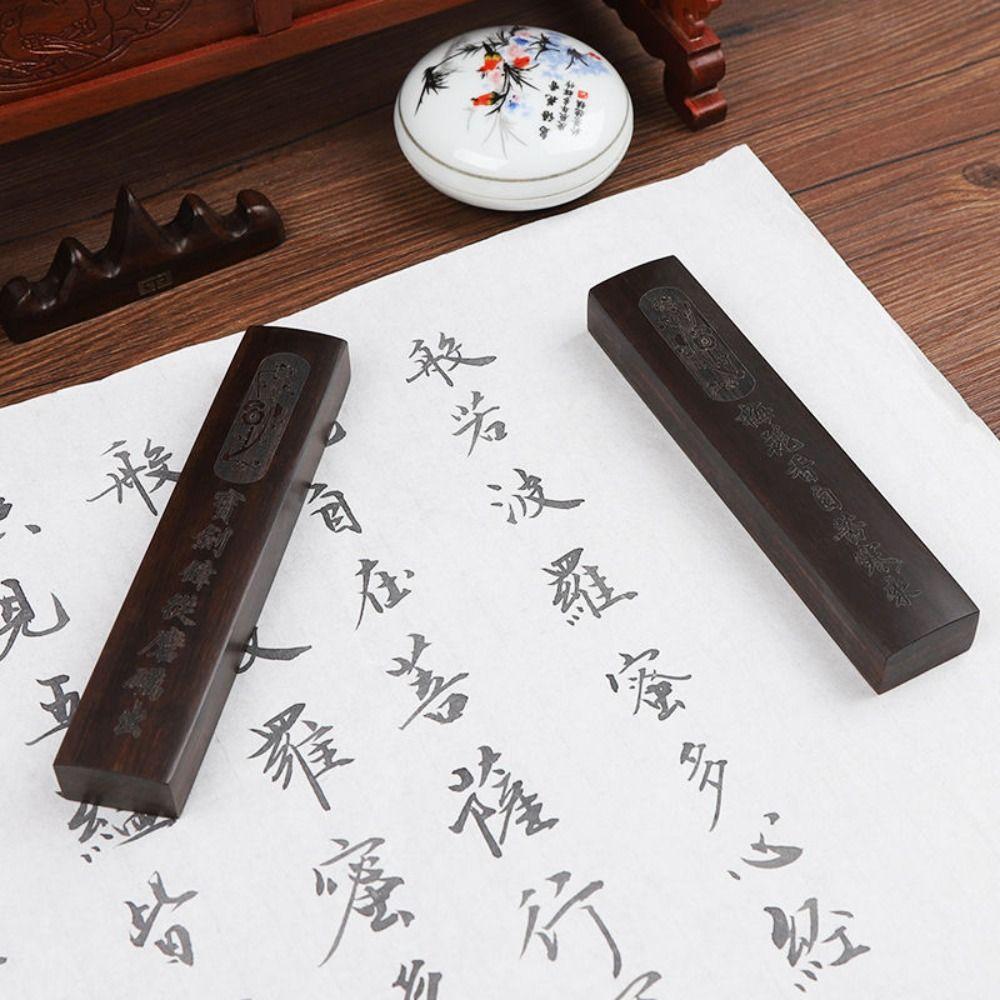 般若波羅蜜多心經
自在菩薩行
般羅蜜多
見五蘊皆
寶劍鋒從磨礪出
梅花香自苦寒來
鳥語花香